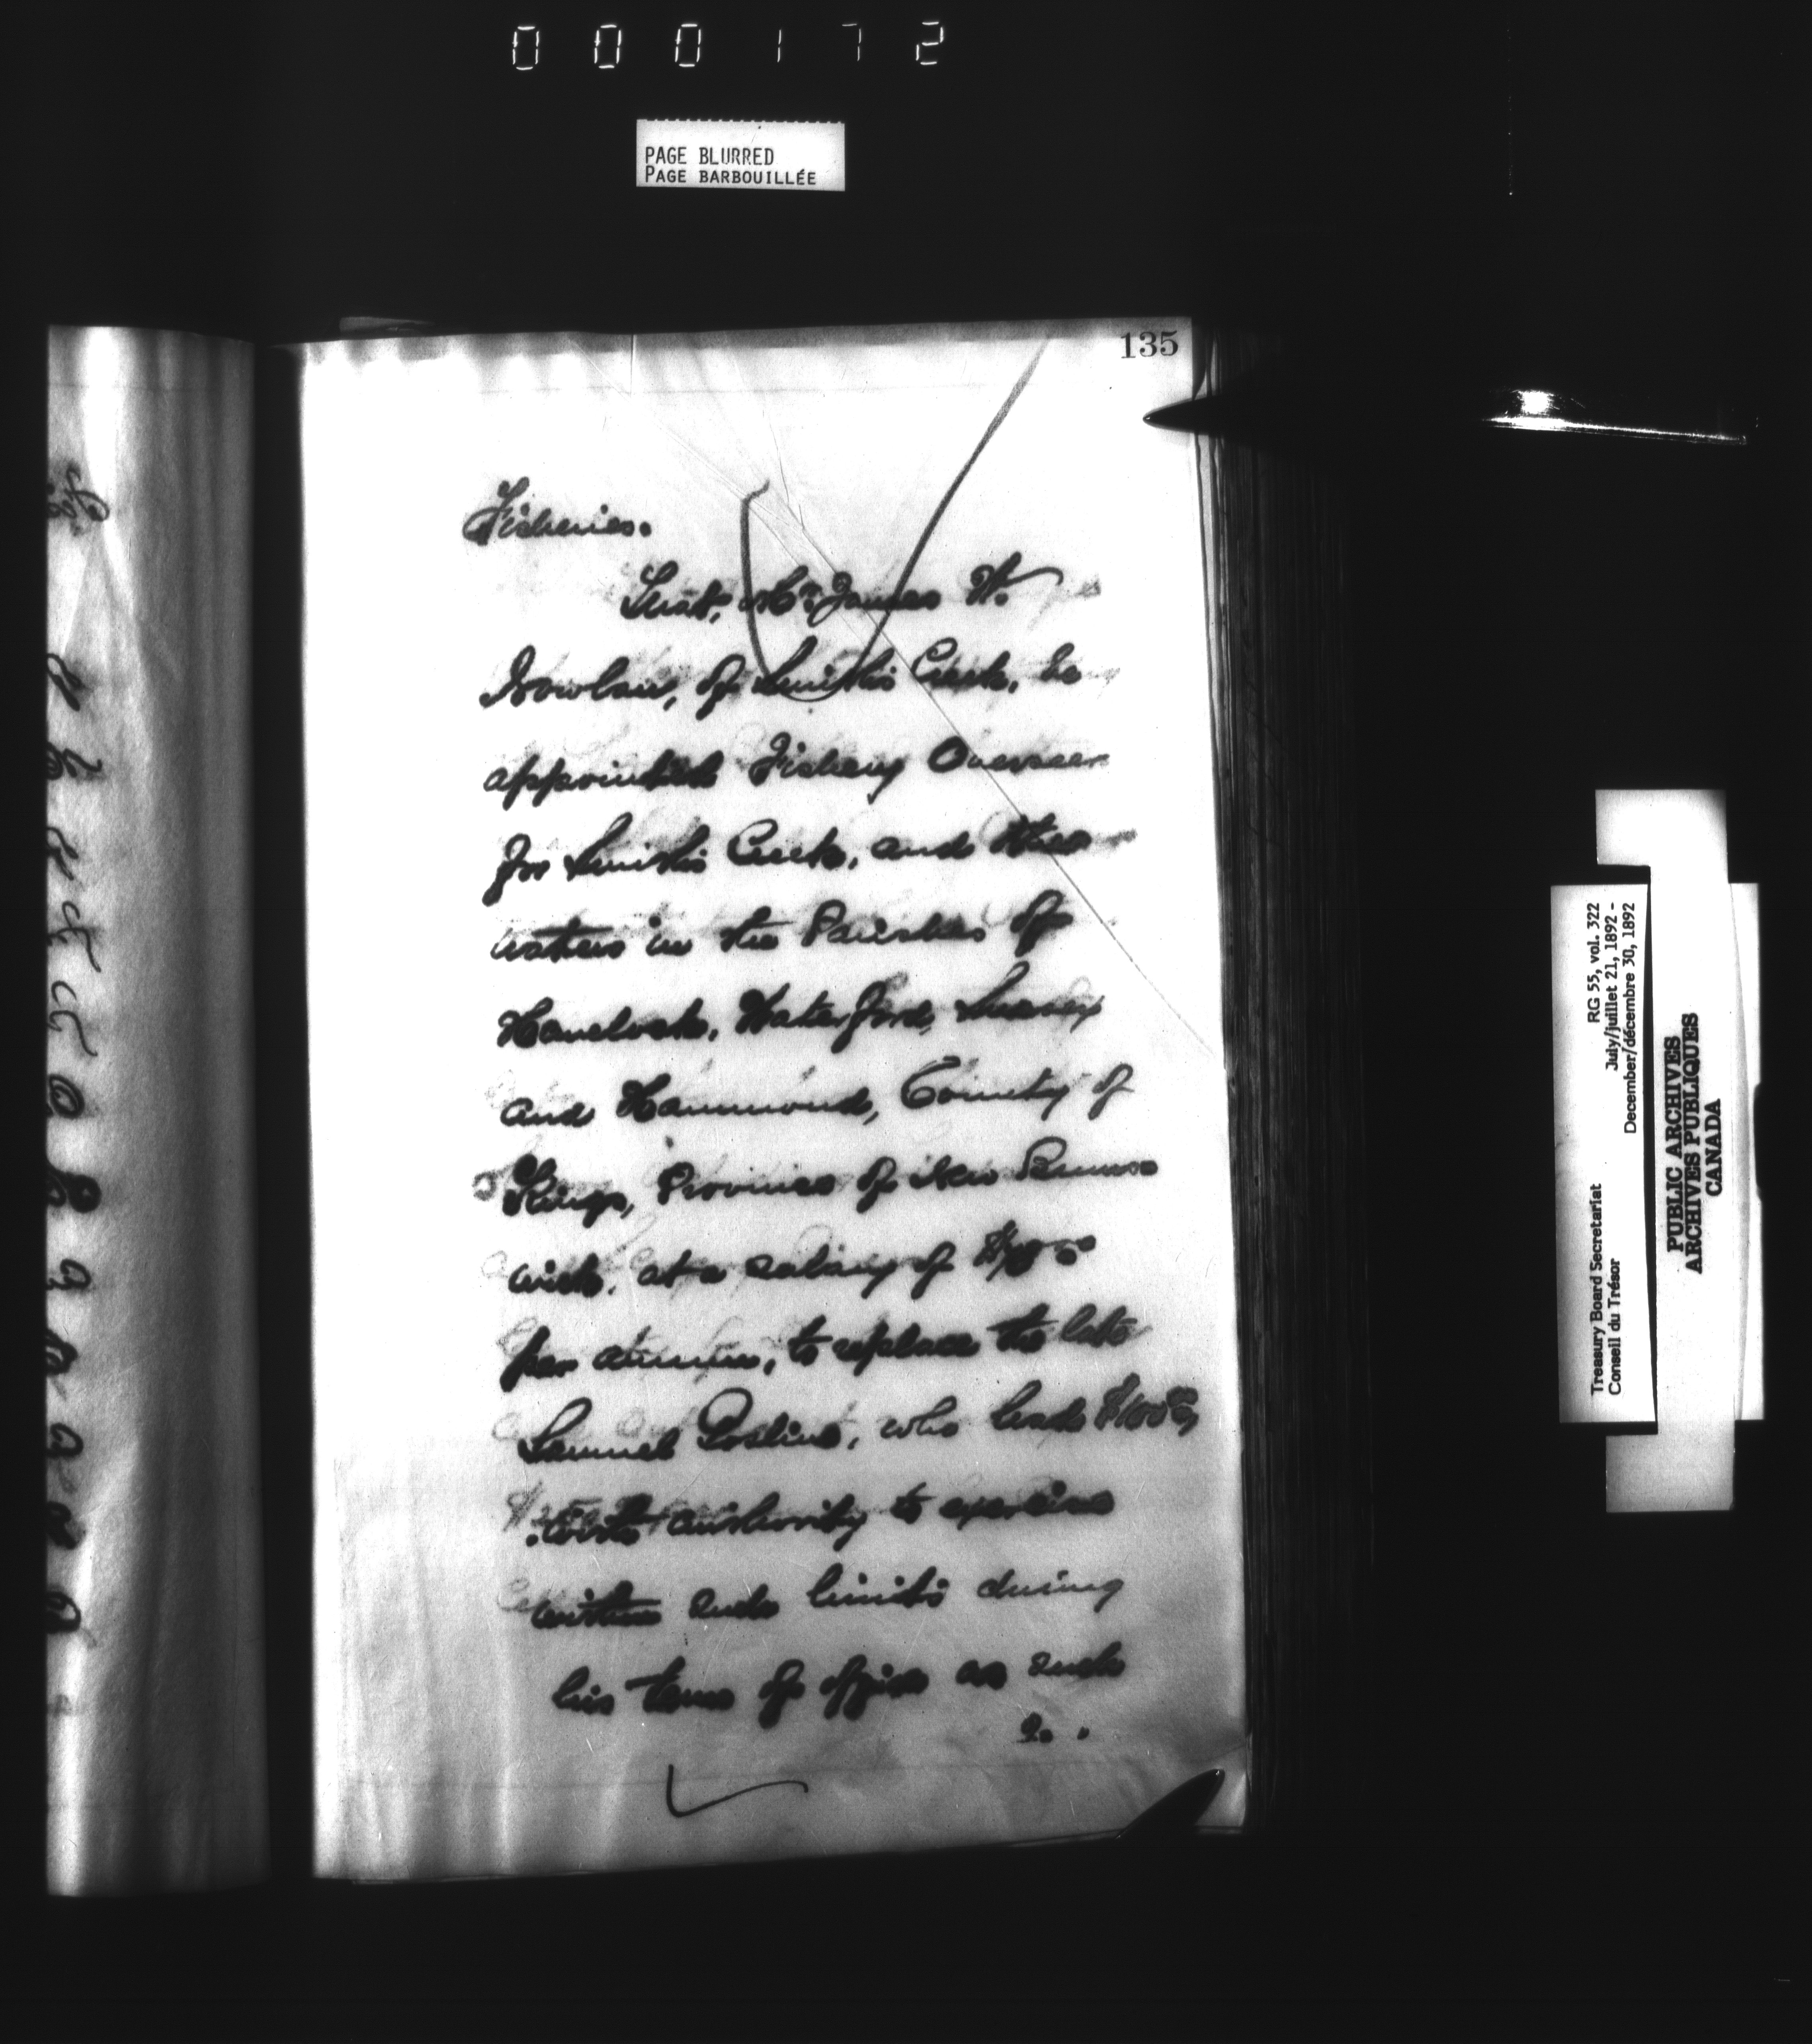 000172
PAGE BLURRED
PAGE BARBOUILLÉE
135
Fisheries.
That, Mr. James W.
Nowlan, of Smith's Creek, be
appointed Fishery Overseer
for Smith's Creek, and the
waters in the Parishes of
Havelock, Waterford, Sussex
and Hammond, County of
Kings, Province of New Bruns-
wick, at a salary of
per annum, to replace the late
Samuel who had $100.00,
with authority to exercise
within such limits during
his term of office as such
RG 55, vol. 322
July/juillet 21, 1892 -
December/décembre 30, 1892
Treasury Board Secretariat
Conseil du Trésor
PUBLIC ARCHIVES
ARCHIVES PUBLIQUES
CANADA